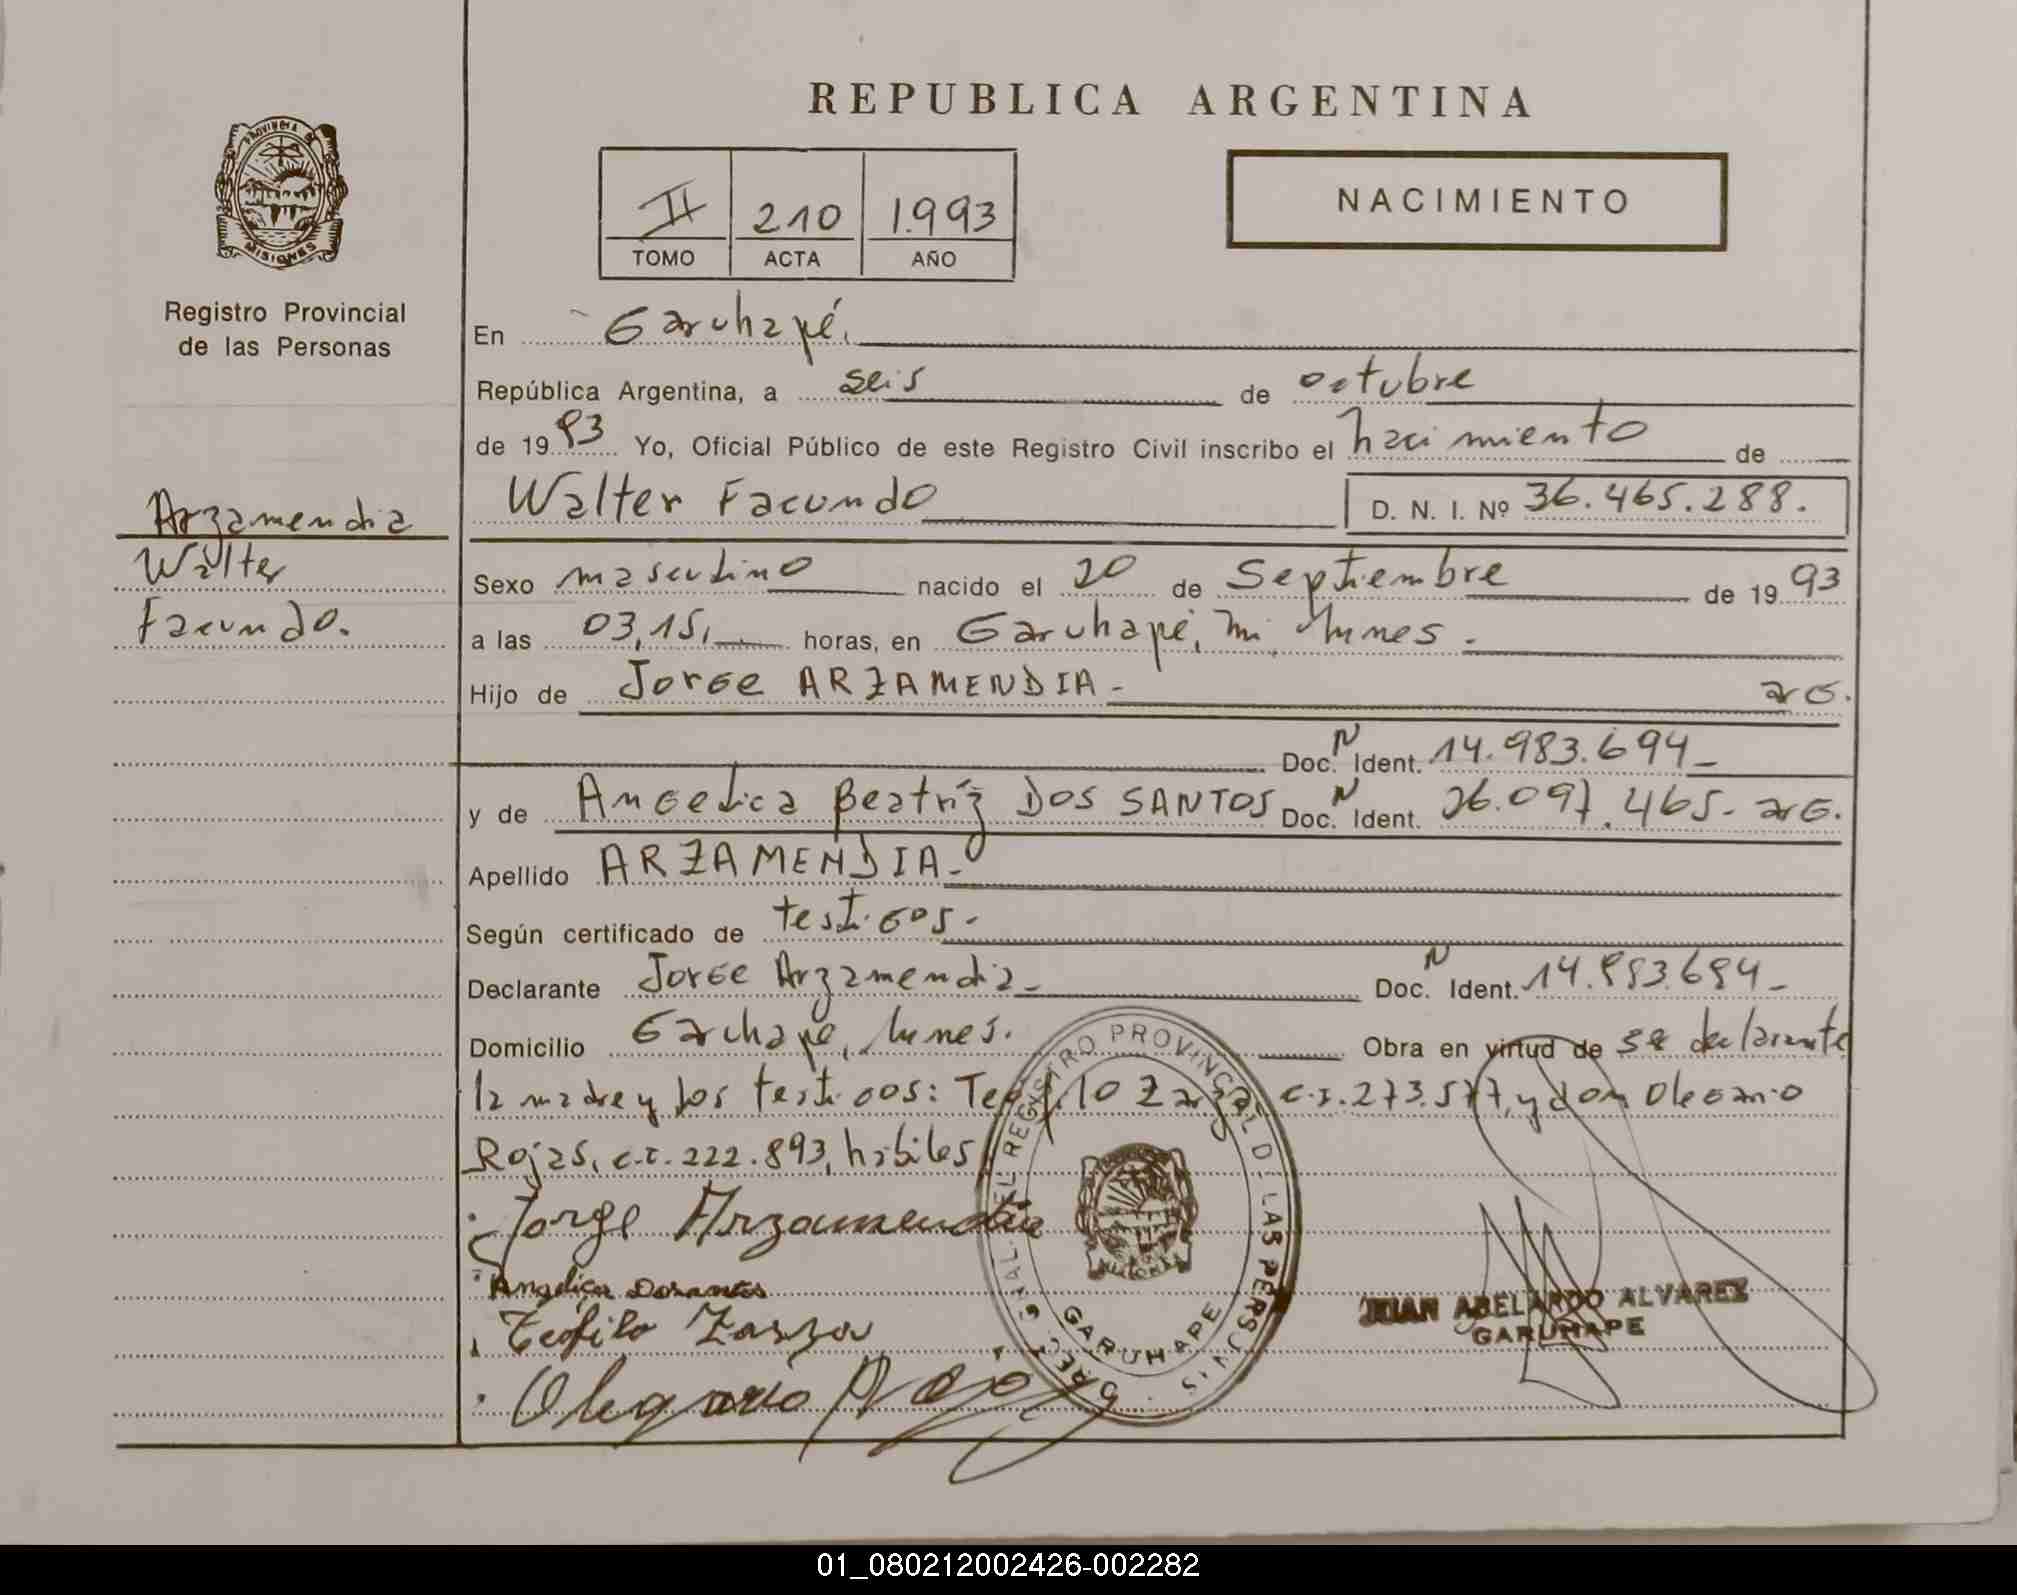 REPUBLICA ARGENTINA
PROVINCIA DE
MISIONES
Registro Provincial
de las Personas
II 210 1.993
TOMO ACTA AÑO
NACIMIENTO
En Garuhapé,
República Argentina, a seis de octubre
de 1993 Yo, Oficial Público de este Registro Civil inscribo el nacimiento de
Walter Facundo D. N. I. Nº 36.465.288.
Arzamendia
Walter
Facundo.
Sexo masculino nacido el 20 de Septiembre de 1993
a las 03,15, horas, en Garuhapé, mi.
Hijo de Jorge ARZAMENDIA- arg.
Doc. N Ident. 14.983.694-
y de Angelica Beatríz DOS SANTOS Doc. N Ident. 26.097.465- arg.
Apellido ARZAMENDIA-
Según certificado de testigos-
Declarante Jorge Arzamendia- Doc. N Ident. 14.983.694-
Domicilio Garuhapé, Obra en virtud de ser declarante
la madre y los testigos: Teofilo Zarza, c.i. 273.577, y don Olegario
Rojas, c.i. 222.893, hábiles
Jorge Arzamendia
Angelica Dosantos
Teofilo Zarza
Olegario Rojas
REGISTRO PROVINCIAL DE LAS PERSONAS
GARUHAPE
JUAN ABELARDO ALVAREZ
GARUHAPE
01_080212002426-002282